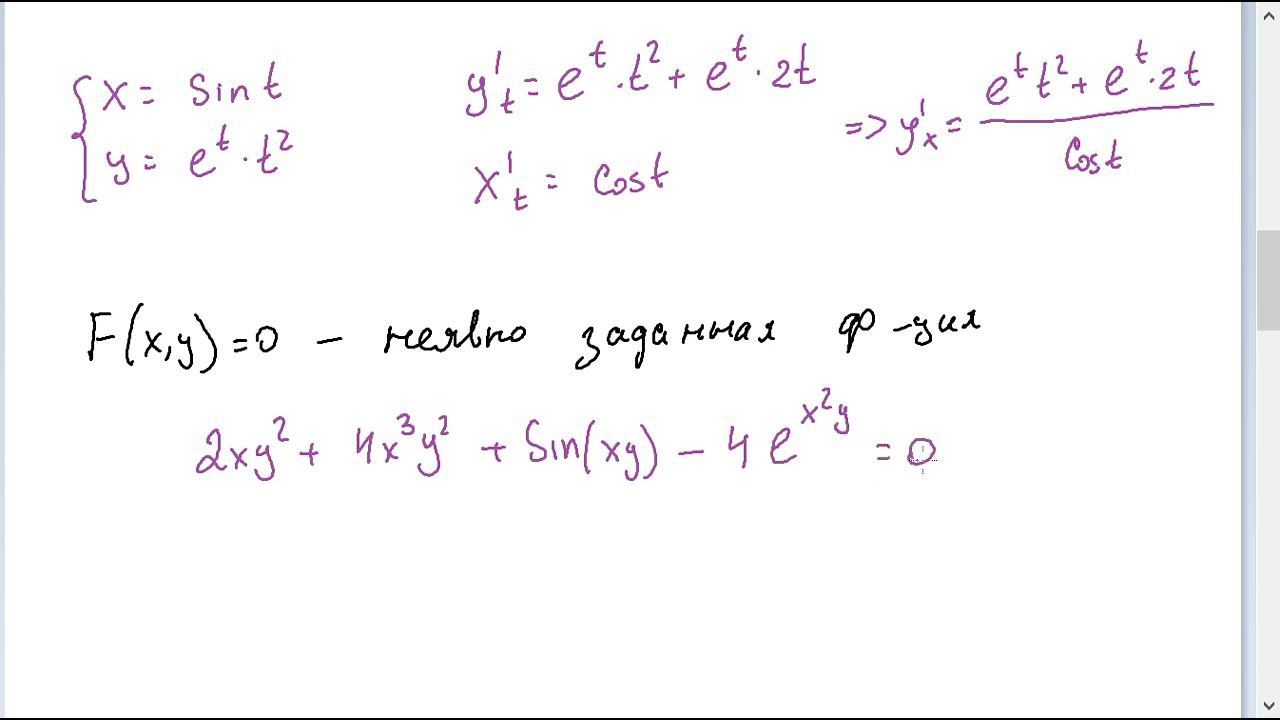 { x = Sin t
y = e^t · t^2
y'_t = e^t · t^2 + e^t · 2t
x'_t = Cos t
=> y'_x = (e^t t^2 + e^t · 2t) / Cos t
F(x,y) = 0 – неявно заданная ф-ция
2xy^2 + 4x^3y^2 + Sin(xy) – 4e^{x^2y} = 0